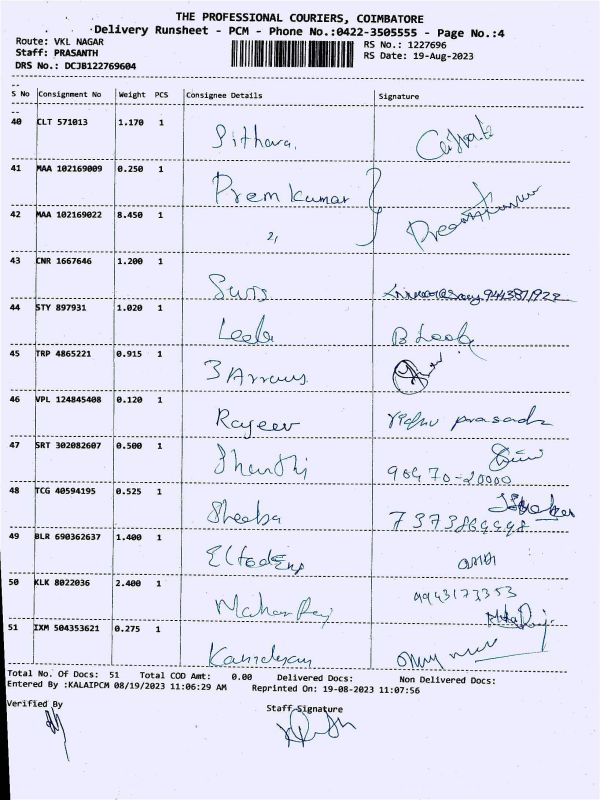 THE PROFESSIONAL COURIERS, COIMBATORE
Delivery Runsheet - PCM - Phone No.:0422-3505555 - Page No.:4
Route: VKL NAGAR RS No.: 1227696
Staff: PRASANTH RS Date: 19-Aug-2023
DRS No.: DCJB122769604
S No Consignment No Weight PCS Consignee Details Signature
40 CLT 571013 1.170 1 Sithara.
41 MAA 102169009 0.250 1 Prem kumar
42 MAA 102169022 8.450 1
43 CNR 1667646 1.200 1
44 STY 897931 1.020 1 Leela B Leela
45 TRP 4865221 0.915 1 3 Arrows
46 VPL 124845408 0.120 1 Rajeev prasadh
47 SRT 302082607 0.500 1 Shanthi
48 TCG 40594195 0.525 1 Sheeba
49 BLR 690362637 1.400 1
50 KLK 8022036 2.400 1 Mahan Raj 9943173353
51 IXM 504353621 0.275 1
Total No. Of Docs: 51 Total COD Amt: 0.00 Delivered Docs: Non Delivered Docs:
Entered By :KALAIPCM 08/19/2023 11:06:29 AM Reprinted On: 19-08-2023 11:07:56
Verified By Staff Signature